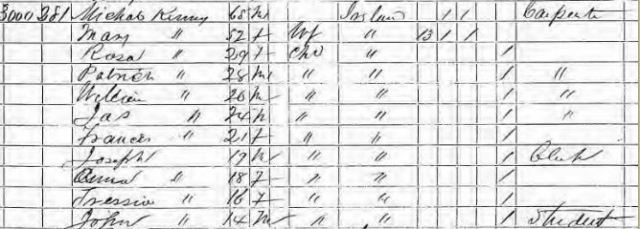 3000 381 Michal Kenny 65 M Ireland 1 1 Carpente
Mary " 52 F Wf " 13 1 1
Rosa " 29 F Chd " 1
Patrick " 28 M " " 1 "
William " 26 M " " 1 "
Jas " 24 M " " 1 "
Frances " 21 F " " 1
Joseph 19 M " " 1 Clerk
" 18 F " " 1
Tressie " 16 F " " 1
John " 14 M " " 1 Student